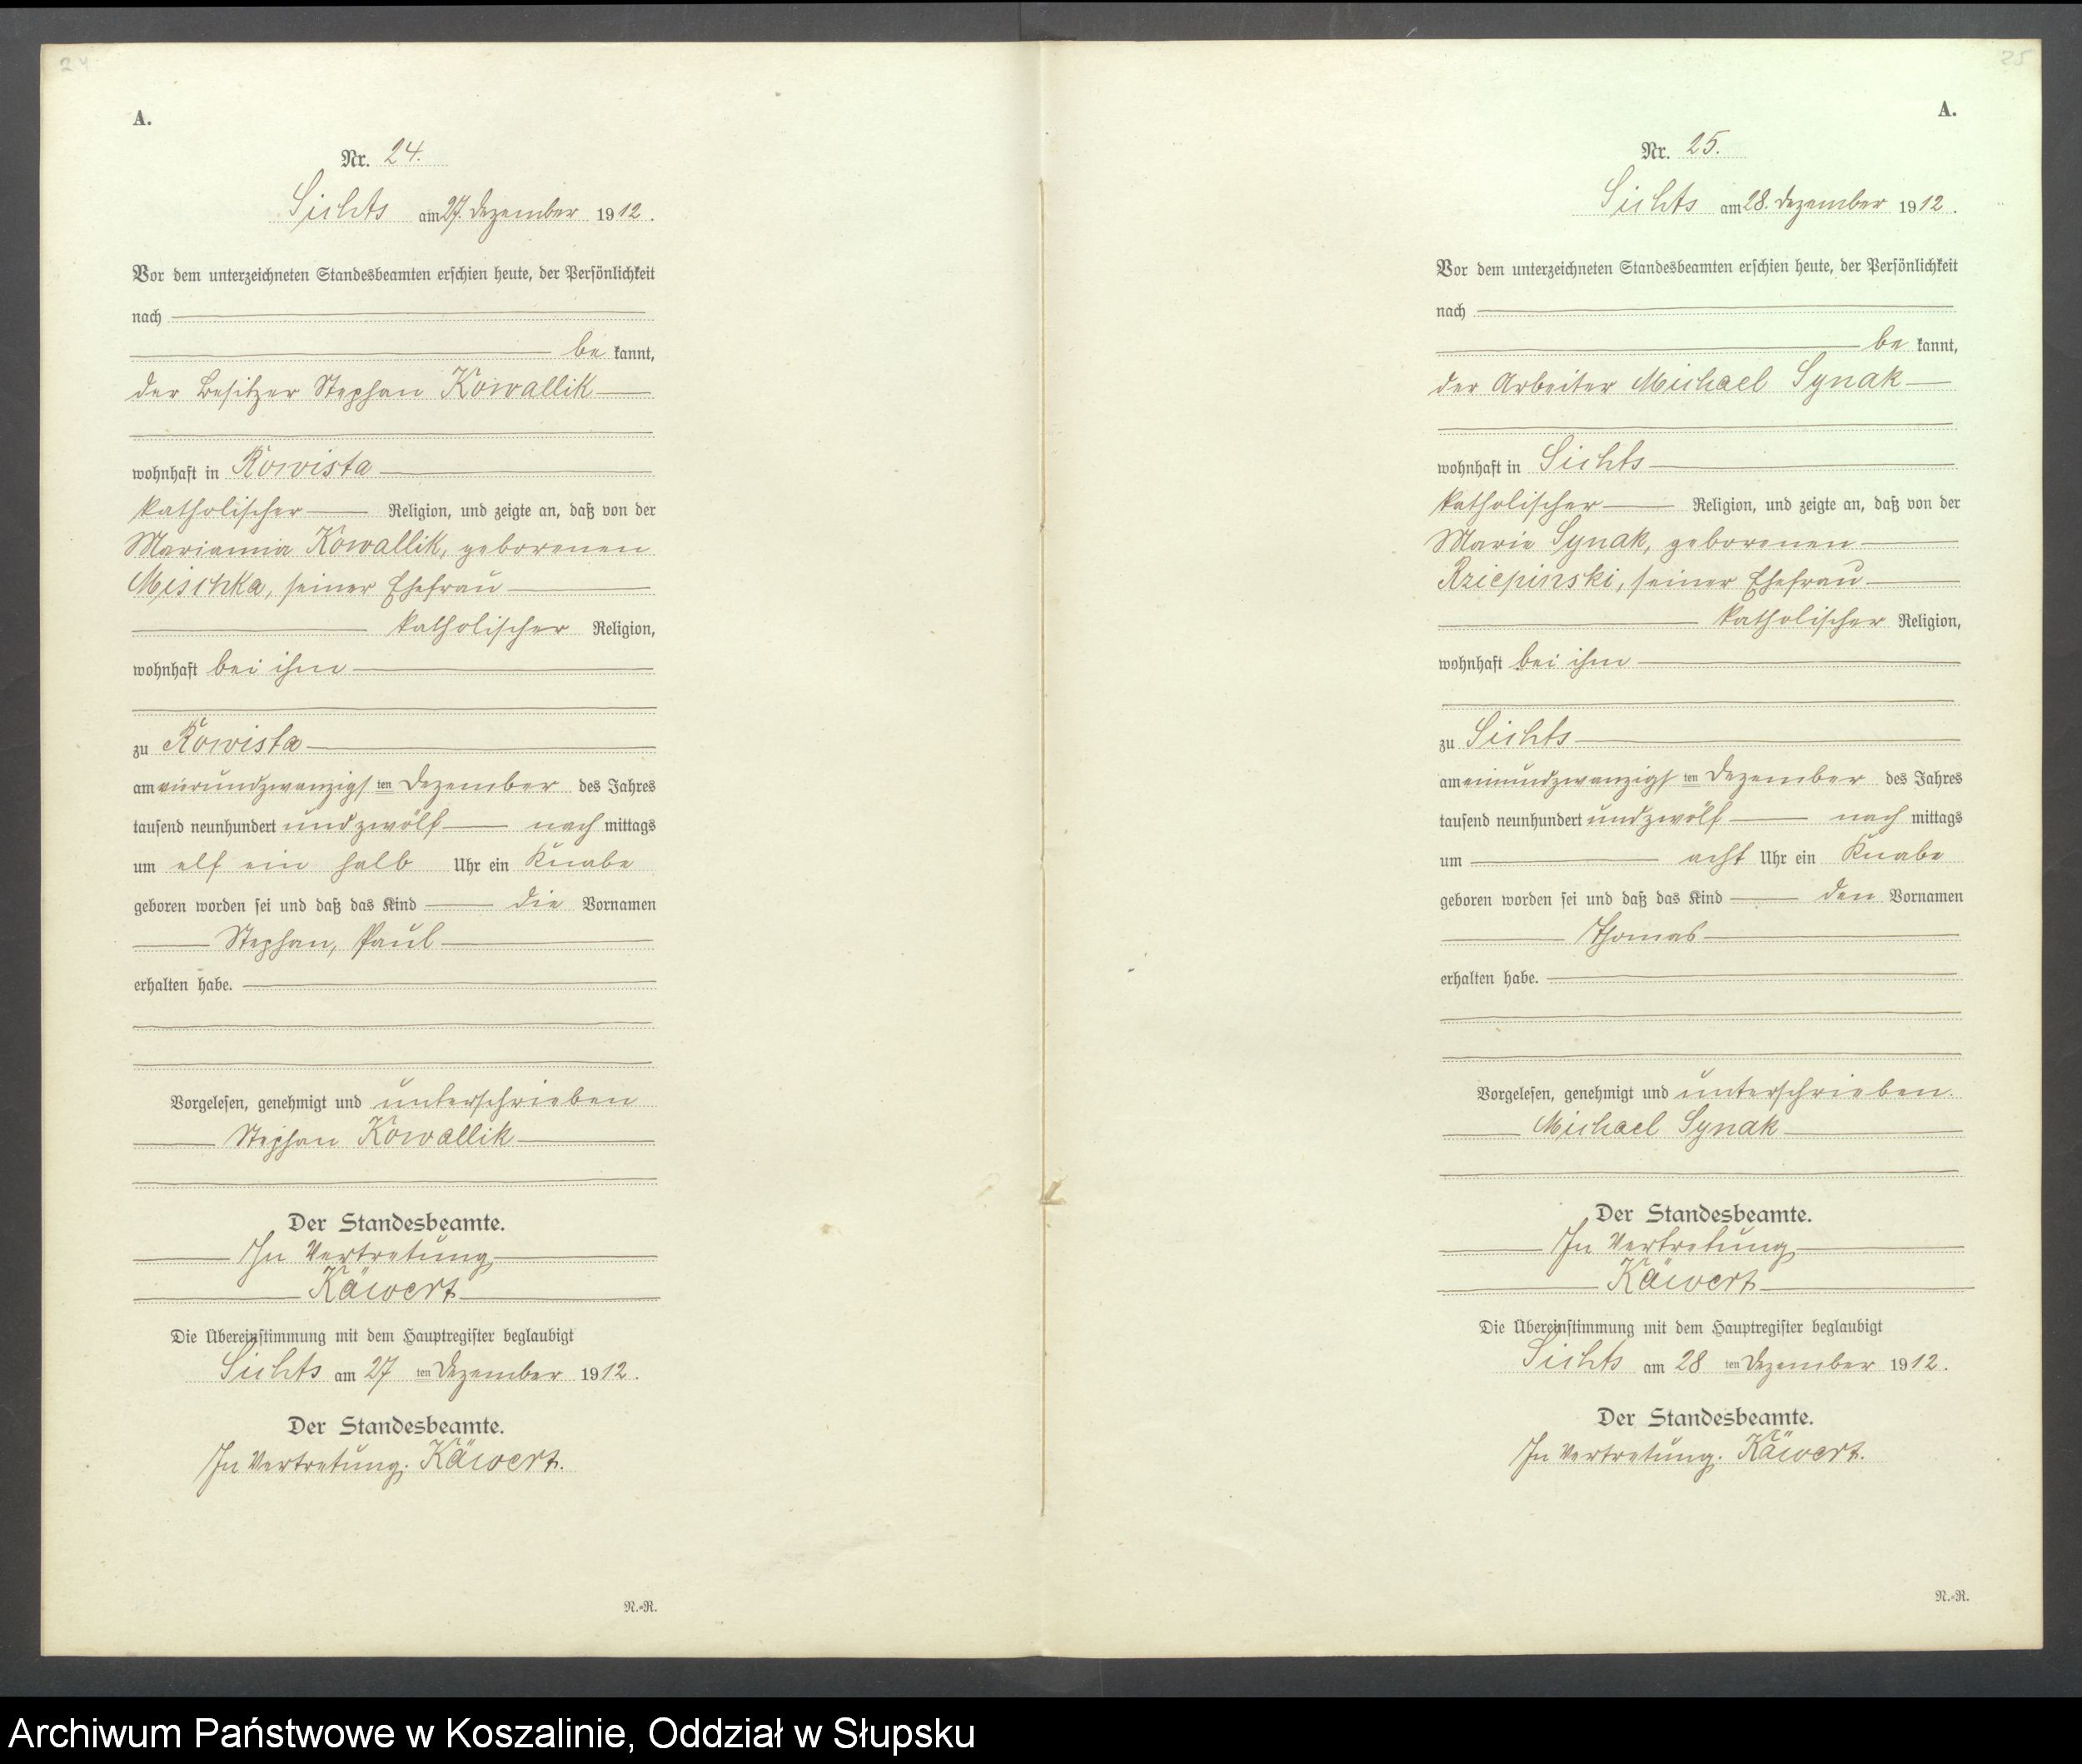 24
A.
Nr. 24.
Sichts am 27. Dezember 1912.
Vor dem unterzeichneten Standesbeamten erschien heute, der Persönlichkeit
nach
be kannt,
der Besitzer Stephan Kowallik
wohnhaft in Kowista
katholischer Religion, und zeigte an, daß von der
Marianna Kowallik, geborenen
Mischka, seiner Ehefrau
katholischer Religion,
wohnhaft bei ihm
zu Kowista
am vierundzwanzigsten Dezember des Jahres
tausend neunhundert und zwölf nach mittags
um elf ein halb Uhr ein Knabe
geboren worden sei und daß das Kind die Vornamen
Stephan, Paul
erhalten habe.
Vorgelesen, genehmigt und unterschrieben
Stephan Kowallik
Der Standesbeamte.
In Vertretung
Käwert
Die Übereinstimmung mit dem Hauptregister beglaubigt
Sichts am 27 ten Dezember 1912.
Der Standesbeamte.
In Vertretung. Käwert.
N.=R.
25
A.
Nr. 25.
Sichts am 28. Dezember 1912.
Vor dem unterzeichneten Standesbeamten erschien heute, der Persönlichkeit
nach
be kannt,
der Arbeiter Michael Synak
wohnhaft in Sichts
katholischer Religion, und zeigte an, daß von der
Marie Synak, geborenen
Rziepinski, seiner Ehefrau
katholischer Religion,
wohnhaft bei ihm
zu Sichts
am einundzwanzigsten Dezember des Jahres
tausend neunhundert und zwölf nach mittags
um acht Uhr ein Knabe
geboren worden sei und daß das Kind den Vornamen
Thomas
erhalten habe.
Vorgelesen, genehmigt und unterschrieben.
Michael Synak
Der Standesbeamte.
In Vertretung
Käwert
Die Übereinstimmung mit dem Hauptregister beglaubigt
Sichts am 28 ten Dezember 1912.
Der Standesbeamte.
In Vertretung. Käwert.
N.=R.
Archiwum Państwowe w Koszalinie, Oddział w Słupsku